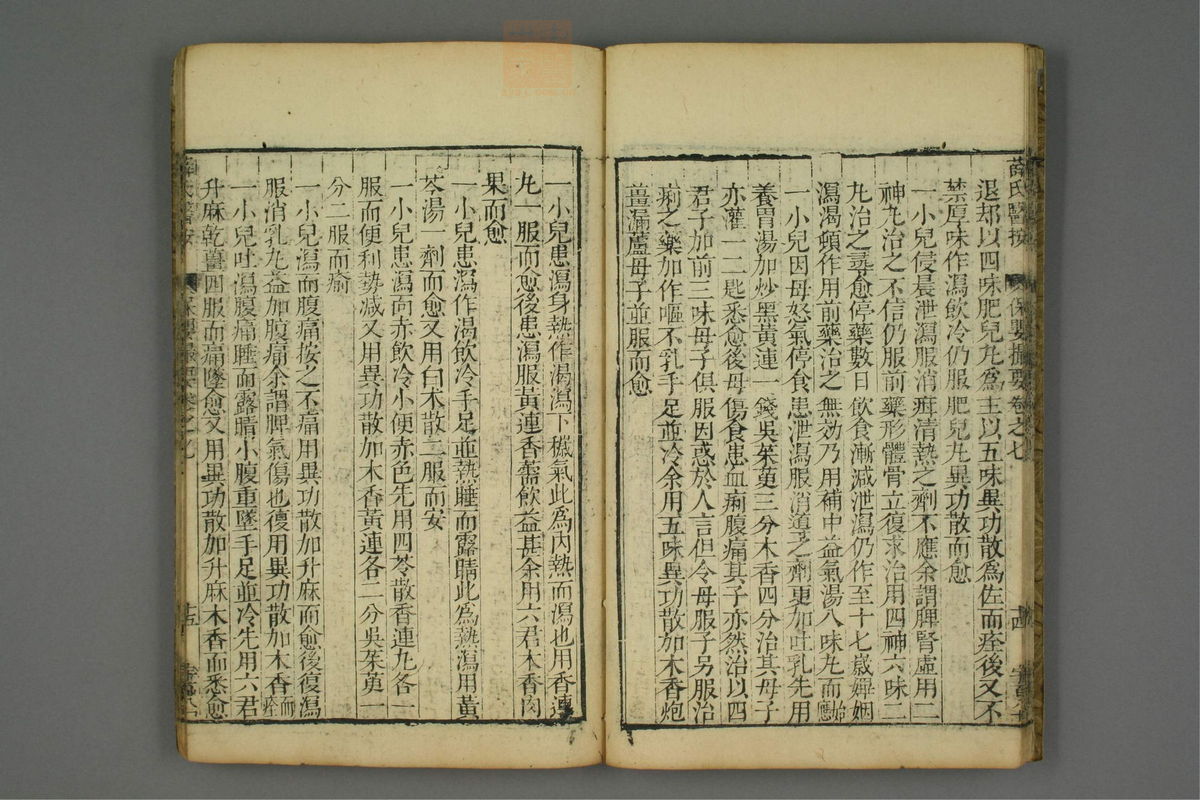 薛氏醫按 保嬰撮要卷之七 十四
退却以四味肥兒丸爲主以五味異功散爲佐而痊後又不
禁厚味作瀉飲冷仍服肥兒丸異功散而愈
一小兒侵晨泄瀉服消疳清熱之劑不應余謂脾腎虛用二
神丸治之不信仍服前藥形體骨立復求治用四神六味二
丸治之尋愈停藥數日飲食漸減泄瀉仍作至十七歲嬋姻
瀉渴頓作用前藥治之無効乃用補中益氣湯八味丸而始
一小兒因母怒氣停食患泄瀉服消導之劑更加吐乳先用
養胃湯加炒黑黃連一錢吳茱萸三分木香四分治其母子
亦灌一二匙悉愈後母傷食患血痢腹痛其子亦然治以四
君子加前三味母子俱服因惑於人言但令母服子另服治
痢之藥加作嘔不乳手足並冷余用五味異功散加木香炮
薑漏蘆母子並服而愈
一小兒患瀉身熱作渴瀉下穢氣此爲内熱而瀉也用香連
丸一服而愈後患瀉服黃連香薷飲益甚余用六君木香肉
果而愈
一小兒患瀉作渴飲冷手足並熱睡而露睛此爲熱瀉用黃
芩湯一劑而愈又用白术散二服而安
一小兒患瀉面赤飲冷小便赤色先用四苓散香連丸各一
服而便利勢减又用異功散加木香黃連各一分吳茱萸一
分二服而瘉
一小兒瀉而腹痛按之不痛用異功散加升麻而愈後復瀉
服消乳丸益加腹痛余謂脾氣傷也復用異功散加木香而痊
一小兒吐瀉腹痛睡而露睛小腹重墜手足並冷先用六君
升麻乾薑四服而痛墜愈又用異功散加升麻木香而悉愈
薛氏醫按 保嬰撮要卷之七 十五